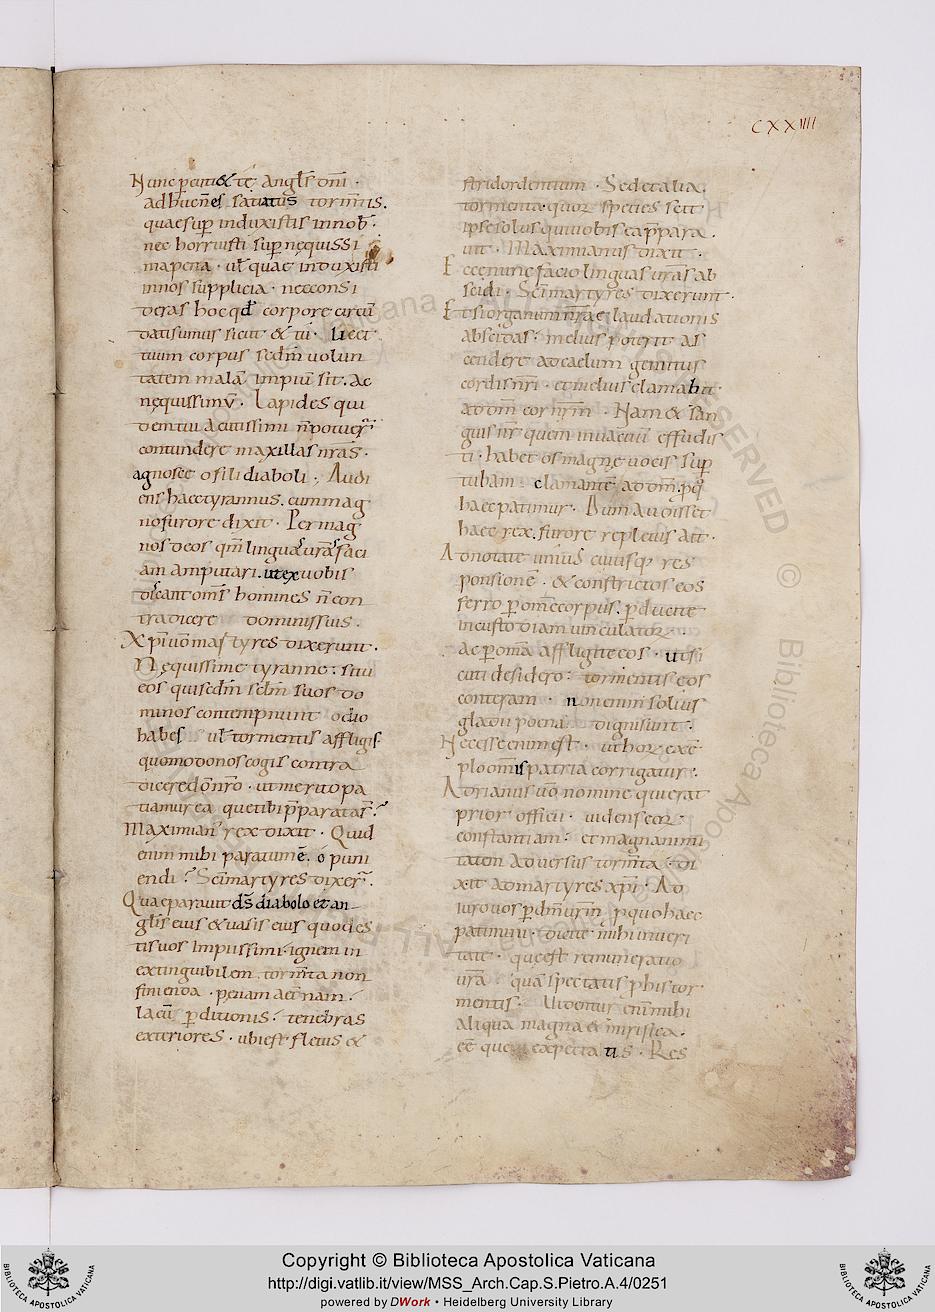 CXXIIII
Nunc percuti& te; angls dni ·
adhuc n̄ es satiatus tormtis.
quae sup induxistis in nob ·
nec horruisti sup nequissi
ma pena · ul quae induxisti
in nos supplicia · nec consi
deras hoc qd corpore circū
dati sumus sicut & tu · Licet
tuum corpus sedm uolun
tatem malā impiū sit . ac
nequissimū · Lapides qui
dentiū acutissimi n potuer
contundere maxillas nras ·
agnosce o fili diaboli · Audi
ens haec tyrannus . cum mag
no furore dixit · Per mag
nos deos qm lingua urās faci
am amputari . ut ex uobis
dicant oms homines n con
tradicere dominis suis .
Xpi uo martyres dixerunt .
Nequissime tyranne . si tu
eos qui sedm sedm suos do
minos contempnunt odio
habes ul tormentis affligis
quomodo nos cogis contra
dicere dō nro · ut merito pa
tiamur ea que tibi pparata s ?
Maximian rex dixit · Quid
enim mihi paratum ē . o puni
endi ? Sci martyres dixer .
Quae parauit ds diabolo et an
glis eius & uasis eius quod es
tis uos impiissimi · ignem in
extinguibilem . tormta non
finienda · penam aetnam .
lacū pditionis . tenebras
exteriores · ubi est fletus &
stridor dentium · Sed et alia
tormenta quor species scit
ipse solus qui uobis ea ppara
uit · Maximianus dixit .
Ecce nunc facio linguas urās ab
scidi · Sci martyres dixerunt .
Etsi organum nrae laudationis
abscidas . melius poterit as
cendere ad caelum gemitus
cordis nri · et melius clamabit
ad dm cor nrm · Nam & san
guis nr quem in uacuū effudis
ti · habet os magne uocis sup
tubam . clamantē ad dm pq
haec patimur · Dum audisset
haec rex . furore repletus ait ·
Adnotate unius cuiusq res
ponsionē · & constrictos eos
ferro p ome corpus . pducite
in custodiam uinculator .
ac p omā affligite eos · ut si
cuti desidero . tormentis eos
conteram . non enim solius
gladii poena digni sunt .
Necesse enim est · ut hor exē
plo omis patria corrigatur .
Adrianus uo nomine qui erat
prior officii . uidens eor
constantiam . et magnanimi
tatem aduersus tormta . di
xit ad martyres xpi · Ad
iuro uos p dm urm p quo haec
patimini · dicite mihi in ueri
tate · que est remuneratio
ura . quā spectatis p his tor
mentis . Uidentur enī mihi
aliqua magna & mirifica .
eē que expectatis · Res
Copyright © Biblioteca Apostolica Vaticana
http://digi.vatlib.it/view/MSS_Arch.Cap.S.Pietro.A.4/0251
powered by DWork • Heidelberg University Library